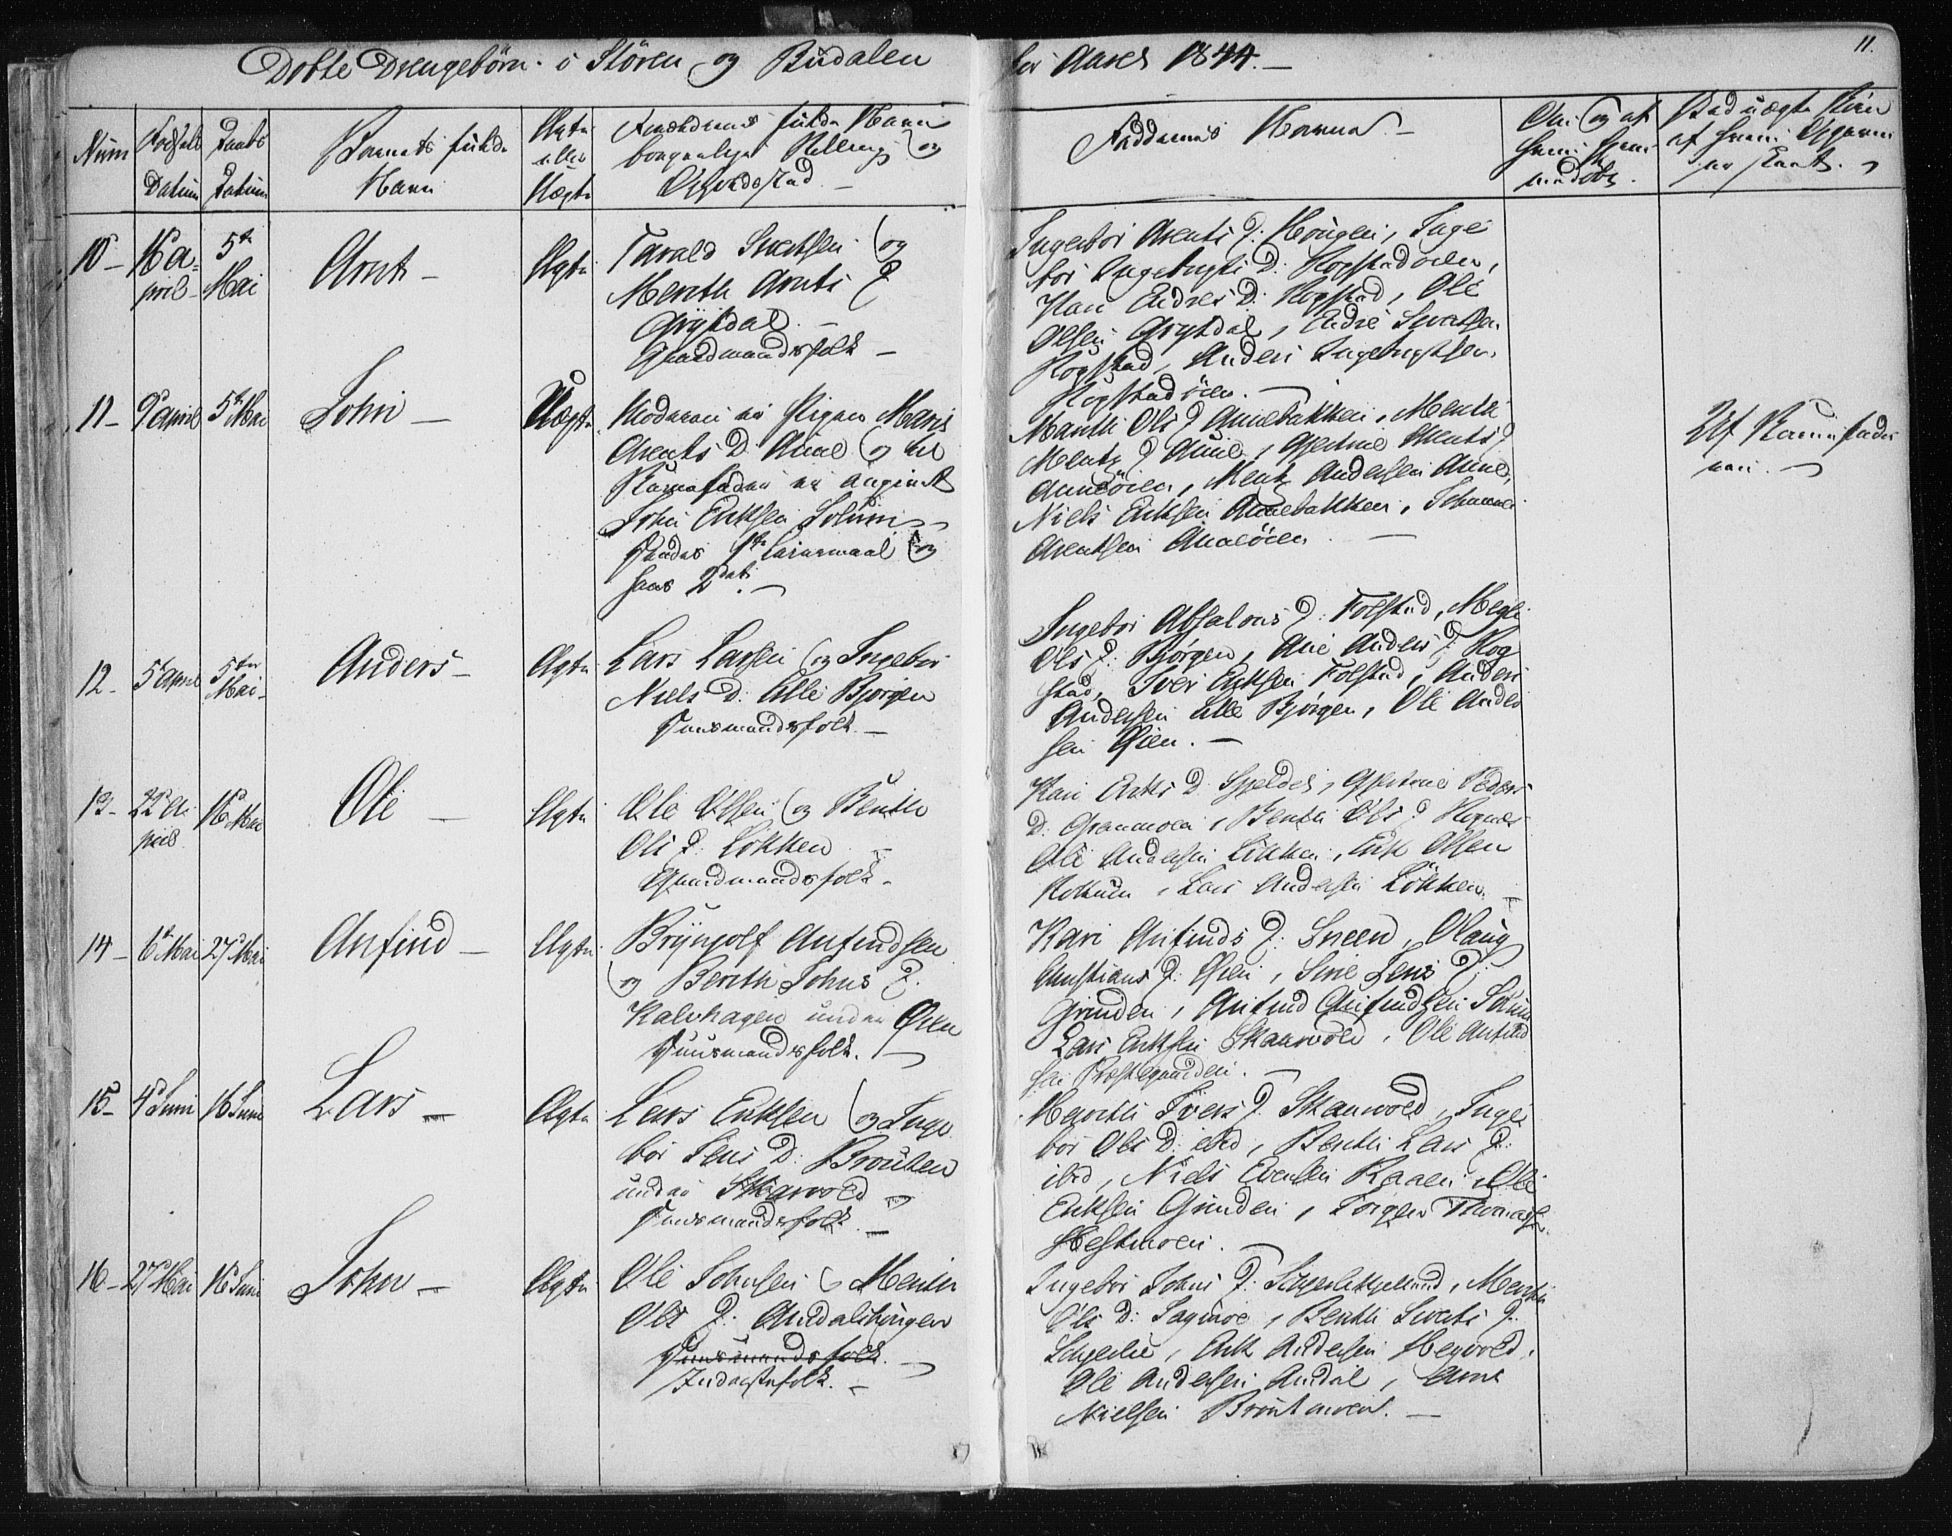 Døbte Drengebørn i Stören og Budalen
for Aaret 1844.
11.
Num
Fødsels
Datum
Daabs
Datum
Barnets fulde
Navn
Ægte
eller
Uægte
Forældrenes fulde Navn
borgerlige Stilling og
Opholdsstad
Faddernes Navne
Om og af
hvem hjemmedøbt
Ved uægte Børn
af hvem Opgaven
er skeet.
10
16 April
5te Mai
Arnt
Ægte
Tarald Sivertsen og
Merith Arnts D
Grytdal
Gaardmandsfolk
Ingebor Arents D: Hougen, Ingebor
Ingebrigts D: Rogstadøien,
Kari Endres D: Rogstad, Ole
Olsen Grytdal, Endre Sivertsen
Rogstad, Anders Ingebrigtsen
Rogstadøien
11
9 April
5te Mai
John
Uægte
Moderen er Pigen Marit
Arents D Aune og til
Barnefader er angivet
John Eriksen Solum
hendes 1ste Leiermaal og
hans 2det
Marith Ols D Aunebakken, Merith
Mentz D Aune, Gjertrud Arents D
Auneöien, Mentz Andersen Aune,
Niels Eriksen Aunebakken, Johannes
Arentsen Auneöien
Af Barnefaderen
12
5 April
5te Mai
Anders
Ægte
Lars Larsen og Ingebor
Niels D: Lille Bjørgen
Huusmandsfolk
Ingebor Absalons D: Folstad, Megli
Ols D: Bjørgen, Ane Anders D Rogstad,
Iver Eriksen Folstad, Anders
Andersen Lille Bjørgen, Ole Andersen
Øien.
13
22 April
16 Mai
Ole
Ægte
Ole Olsen og Berith
Ols D: Løkken
Gaardmandsfolk
Kari Eriks D: Gjeldes, Gjertrud Peders
D: Granmoen, Berith Ols D Rognes
Ole Andersen Løkken, Erik Olsen
Rokum, Lars Andersen Løkken
14
6te Mai
27 Mai
Anfind
Ægte
Brynjolf Anfindsen
og Berith Johns D.
Kalvhagen under Øien
Huusmandsfolk.
Kari Anfinds D: Sneen, Olaug
Christians D: Øien, Sine Jens D:
Grinden, Anfind Anfindsen Solum
Lars Eriksen Skarvold, Ole Anfindsen
Præstegaarden.
15
4 Juni
16 Juni
Lars
Ægte
Lars Eriksen og Ingebor
Jens D: Brouten
under Skarvold
Huusmandsfolk
Marith Ivers D. Skarvold, Ingebor
Ols D: ibid, Berith Lars D:
ibid, Niels Evensen Raaen, Ole
Eriksen Grinden, Jørgen Thomassen
Hestmoen.
16
27 Mai
16 Juni
John
Ægte
Ole Johnsen og Merith
Ols D: Aundalshaugen
Huusmandsfolk.
Inderstefolk.
Ingebor Johns D: , Merith
Ols D: Sagmoe, Berith Siverts D:
, Erik Andersen Hegvold,
Ole Andersen Aundal, Arnt
Nielsen Brøutmoen.